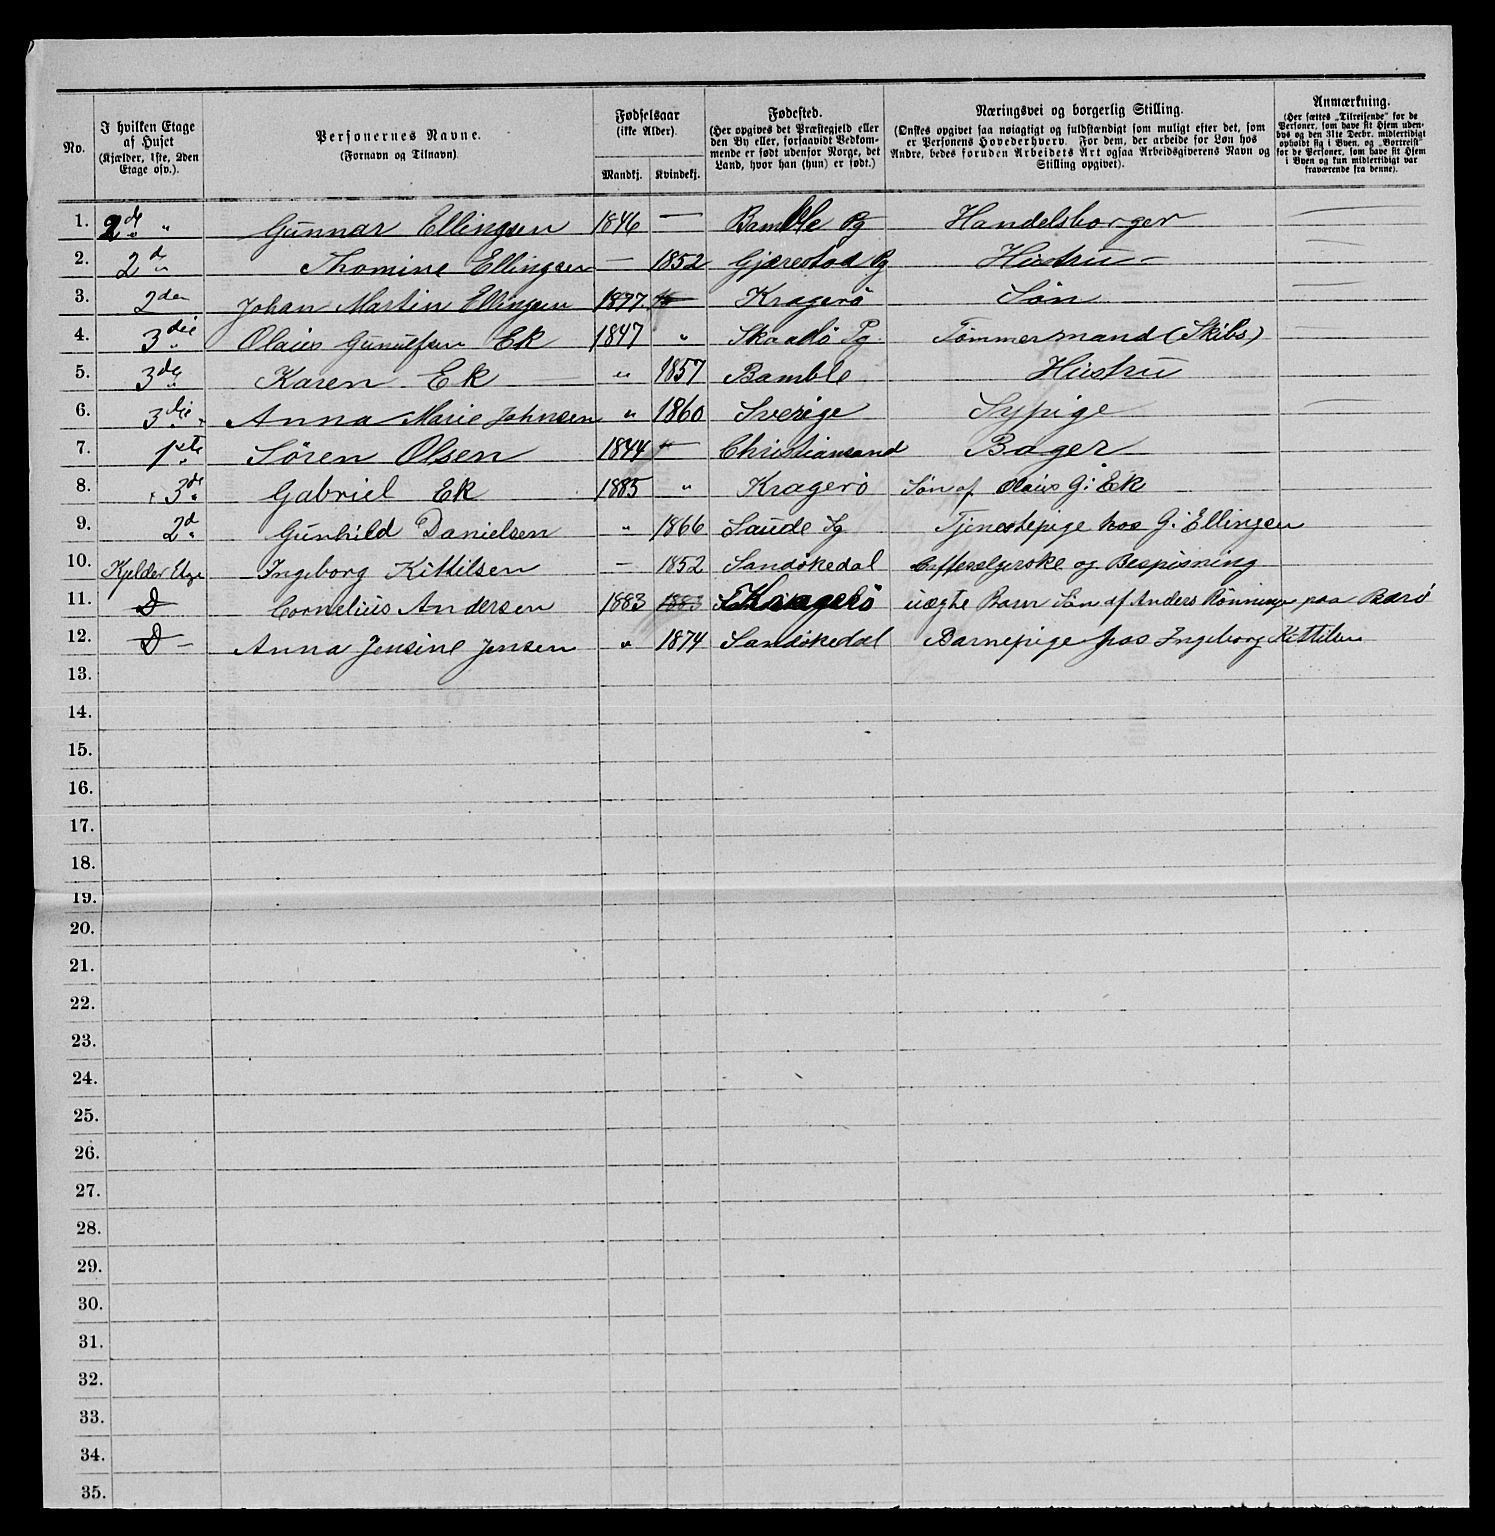 No.
I hvilken Etage af Huset (Kjælder, 1ste, 2den Etage osv.).
Personernes Navne. (Fornavn og Tilnavn)
Fødselsaar (ikke Alder). Mandkj. Kvindekj.
Fødested. (Her opgives det Præstegjeld eller den By eller, forsaavidt Vedkommende er født udenfor Norge, det Land, hvor han (hun) er født.)
Næringsvei og borgerlig Stilling. (Ønskes opgivet saa nøiagtigt og fuldstændigt som muligt efter det, som er Personens Hovederhverv. For dem, der arbeide for Løn hos Andre, bedes foruden Arbeidets Art ogsaa Arbeidsgiverens Navn og Stilling opgivet).
Anmærkning. (Her sættes „Tilreisende" for de Personer, som have sit Hjem udenbys og den 31te Decbr. midlertidigt opholdt sig i Byen, og „Bortreist" for de Personer, som have sit Hjem i Byen og kun midlertidigt var fraværende fra denne).
1. 2de „ Gunnar Ellingsen 1846 — Bamble Pg Handelsborger —
2. 2d Thomine Ellingsen — 1852 Gjærestad Pg Hustru —
3. 2den Johan Martin Ellingsen 1877 Kragerö Sön —
4. 3die Olaus Gunulfsen Ek 1847 „ Skaatö Pg. Tömmermand (Skibs) —
5. 3de Karen Ek — „ 1857 Bamble Hustru
6. 3die Anna Marie Johnsen „ 1860 Sverige Sypige —
7. 1ste Sören Olsen 1844 — Christiansand Bager
8. 3de Gabriel Ek 1885 „ Kragerö Sön af Olaus G: Ek
9. 2d Gunhild Danielsen „ 1866 Saude Sg Tjenestepige hos G: Ellingsen
10. Kjelder Etge Ingeborg Kittilsen — 1852 Sandökedal Caffesælgerske og Bespisning
11. D Cornelius Andersen 1883 1883 Kragerö uægte Barn Sön af Anders Rönninge paa Barö
12. D — Anna Jensine Jensen „ 1874 Sandökedal Barnepige hos Ingeborg Kittilsen
13.
14.
15.
16.
17.
18.
19.
20.
21.
22.
23.
24.
25.
26.
27.
28.
29.
30.
31.
32.
33.
34.
35.